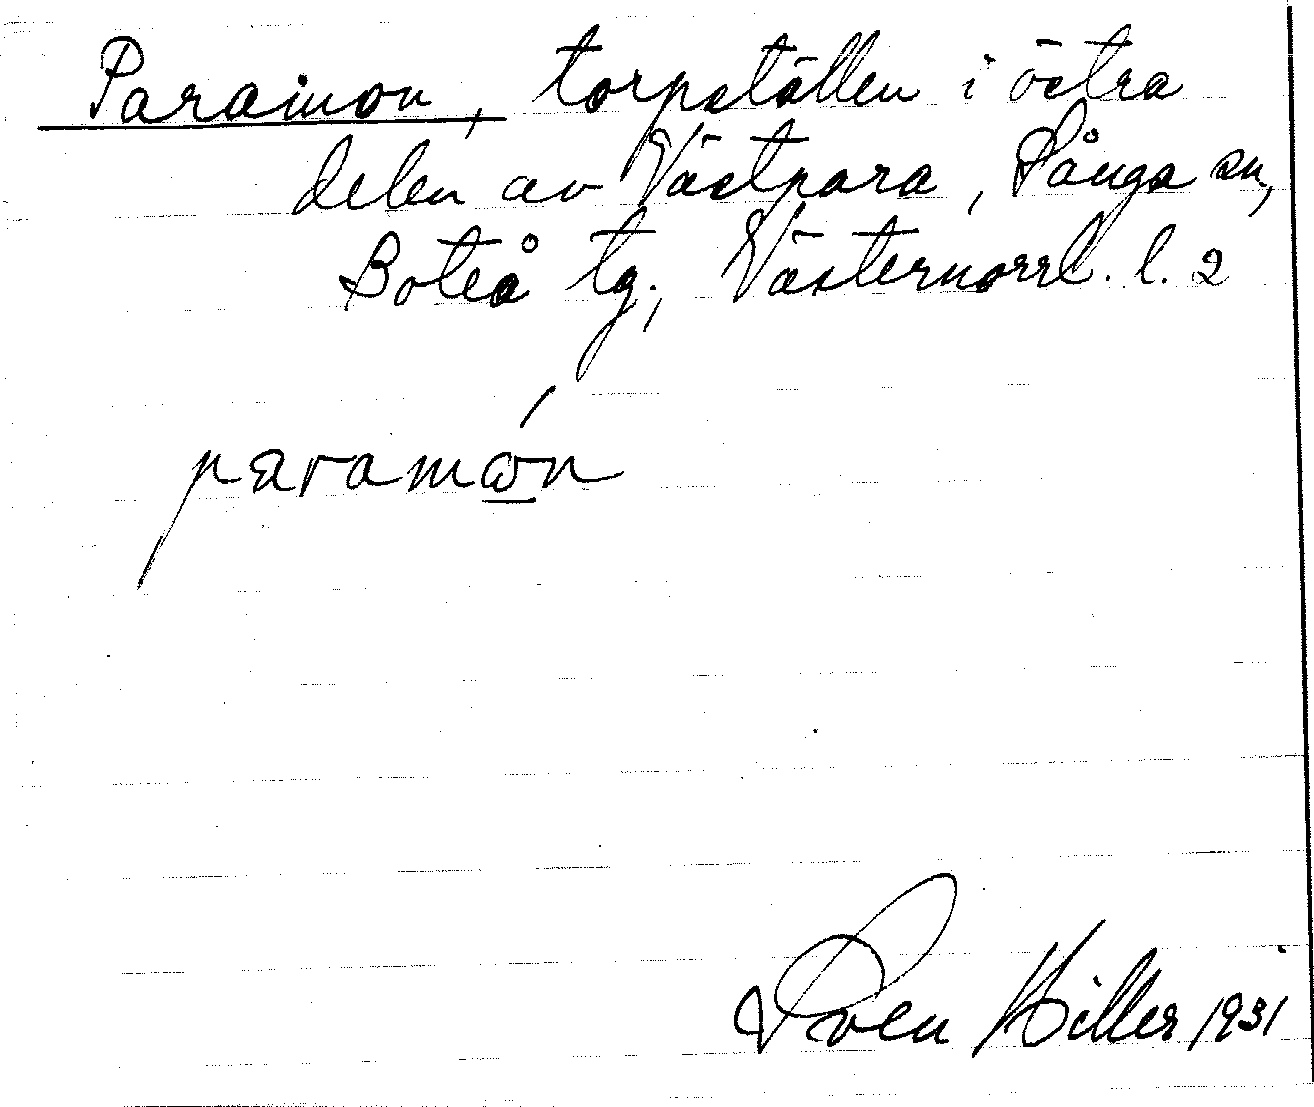 Paramon, torpställen i östra
delen av Västpara, Sånga sn,
Boteå tg., Västernorrl. l. 2
paramo̲n
Sven Hiller 1931